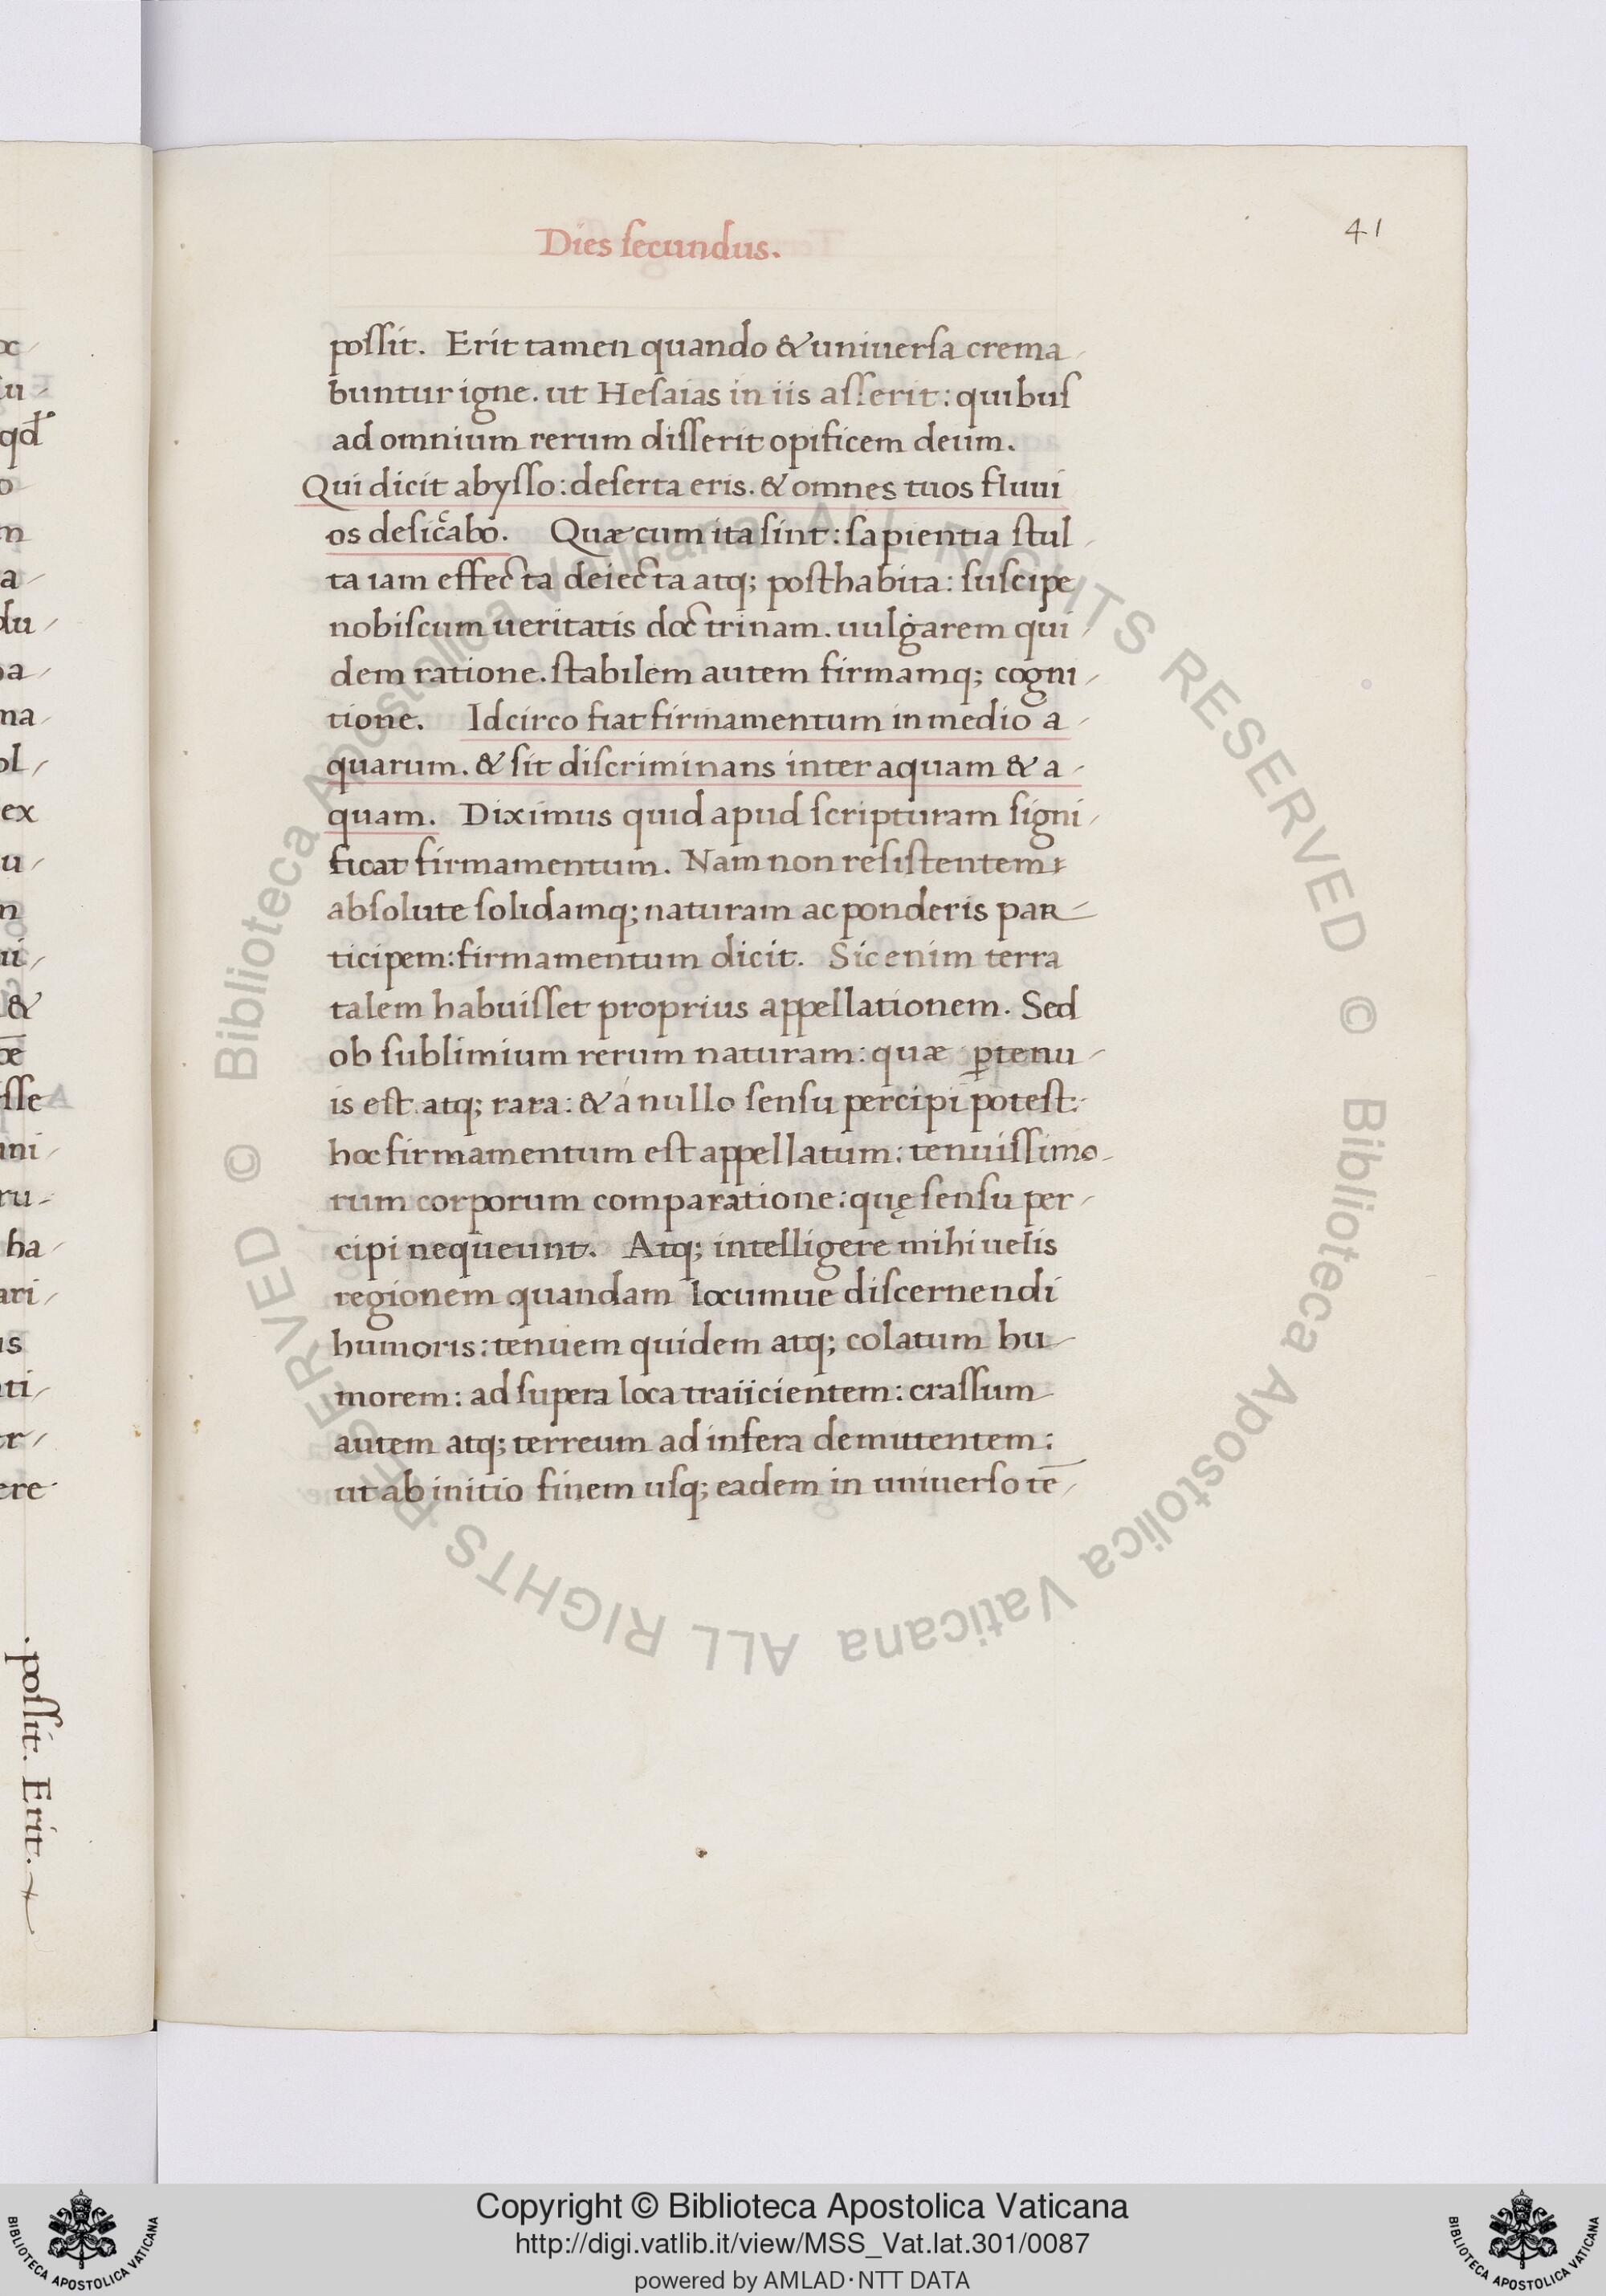 Dies secundus.
41
possit. Erit tamen quando & uniuersa crema
buntur igne. ut Hesaias in iis asserit: quibus
ad omnium rerum disserit opificem deum.
Qui dicit abysso: deserta eris. & omnes tuos fluui
os desic̃abo. Quæ cum ita sint: sapientia stul
ta iam effecta deiecta atq; posthabita: suscipe
nobiscum ueritatis doctrinam. uulgarem qui
dem ratione. stabilem autem firmamq; cogni
tione. Idcirco fiat firmamentum in medio a
quarum. & sit discriminans inter aquam & a
quam. Diximus quid apud scripturam signi
ficat firmamentum. Nam non resistentem
absolute solidamq; naturam ac ponderis par
ticipem: firmamentum dicit. Sic enim terra
talem habuisset proprius appellationem. Sed
ob sublimium rerum naturam: quæ ꝑtenu
is est atq; rara: & a nullo sensu percipi potest:
hoc firmamentum est appellatum: tenuissimo
rum corporum comparatione: quę sensu per
cipi nequeunt. Atq; intelligere mihi uelis
regionem quandam locumue discernendi
humoris: tenuem quidem atq; colatum hu
morem: ad supera loca traiicientem: crassum
autem atq; terreum ad infera demittentem:
ut ab initio finem usq; eadem in uniuerso tē
possit. Erit.
Copyright © Biblioteca Apostolica Vaticana
http://digi.vatlib.it/view/MSS_Vat.lat.301/0087
powered by AMLAD·NTT DATA
BIBLIOTECA APOSTOLICA VATICANA
BIBLIOTECA APOSTOLICA VATICANA
© Biblioteca Apostolica Vaticana ALL RIGHTS RESERVED © Biblioteca Apostolica Vaticana ALL RIGHTS RESERVED